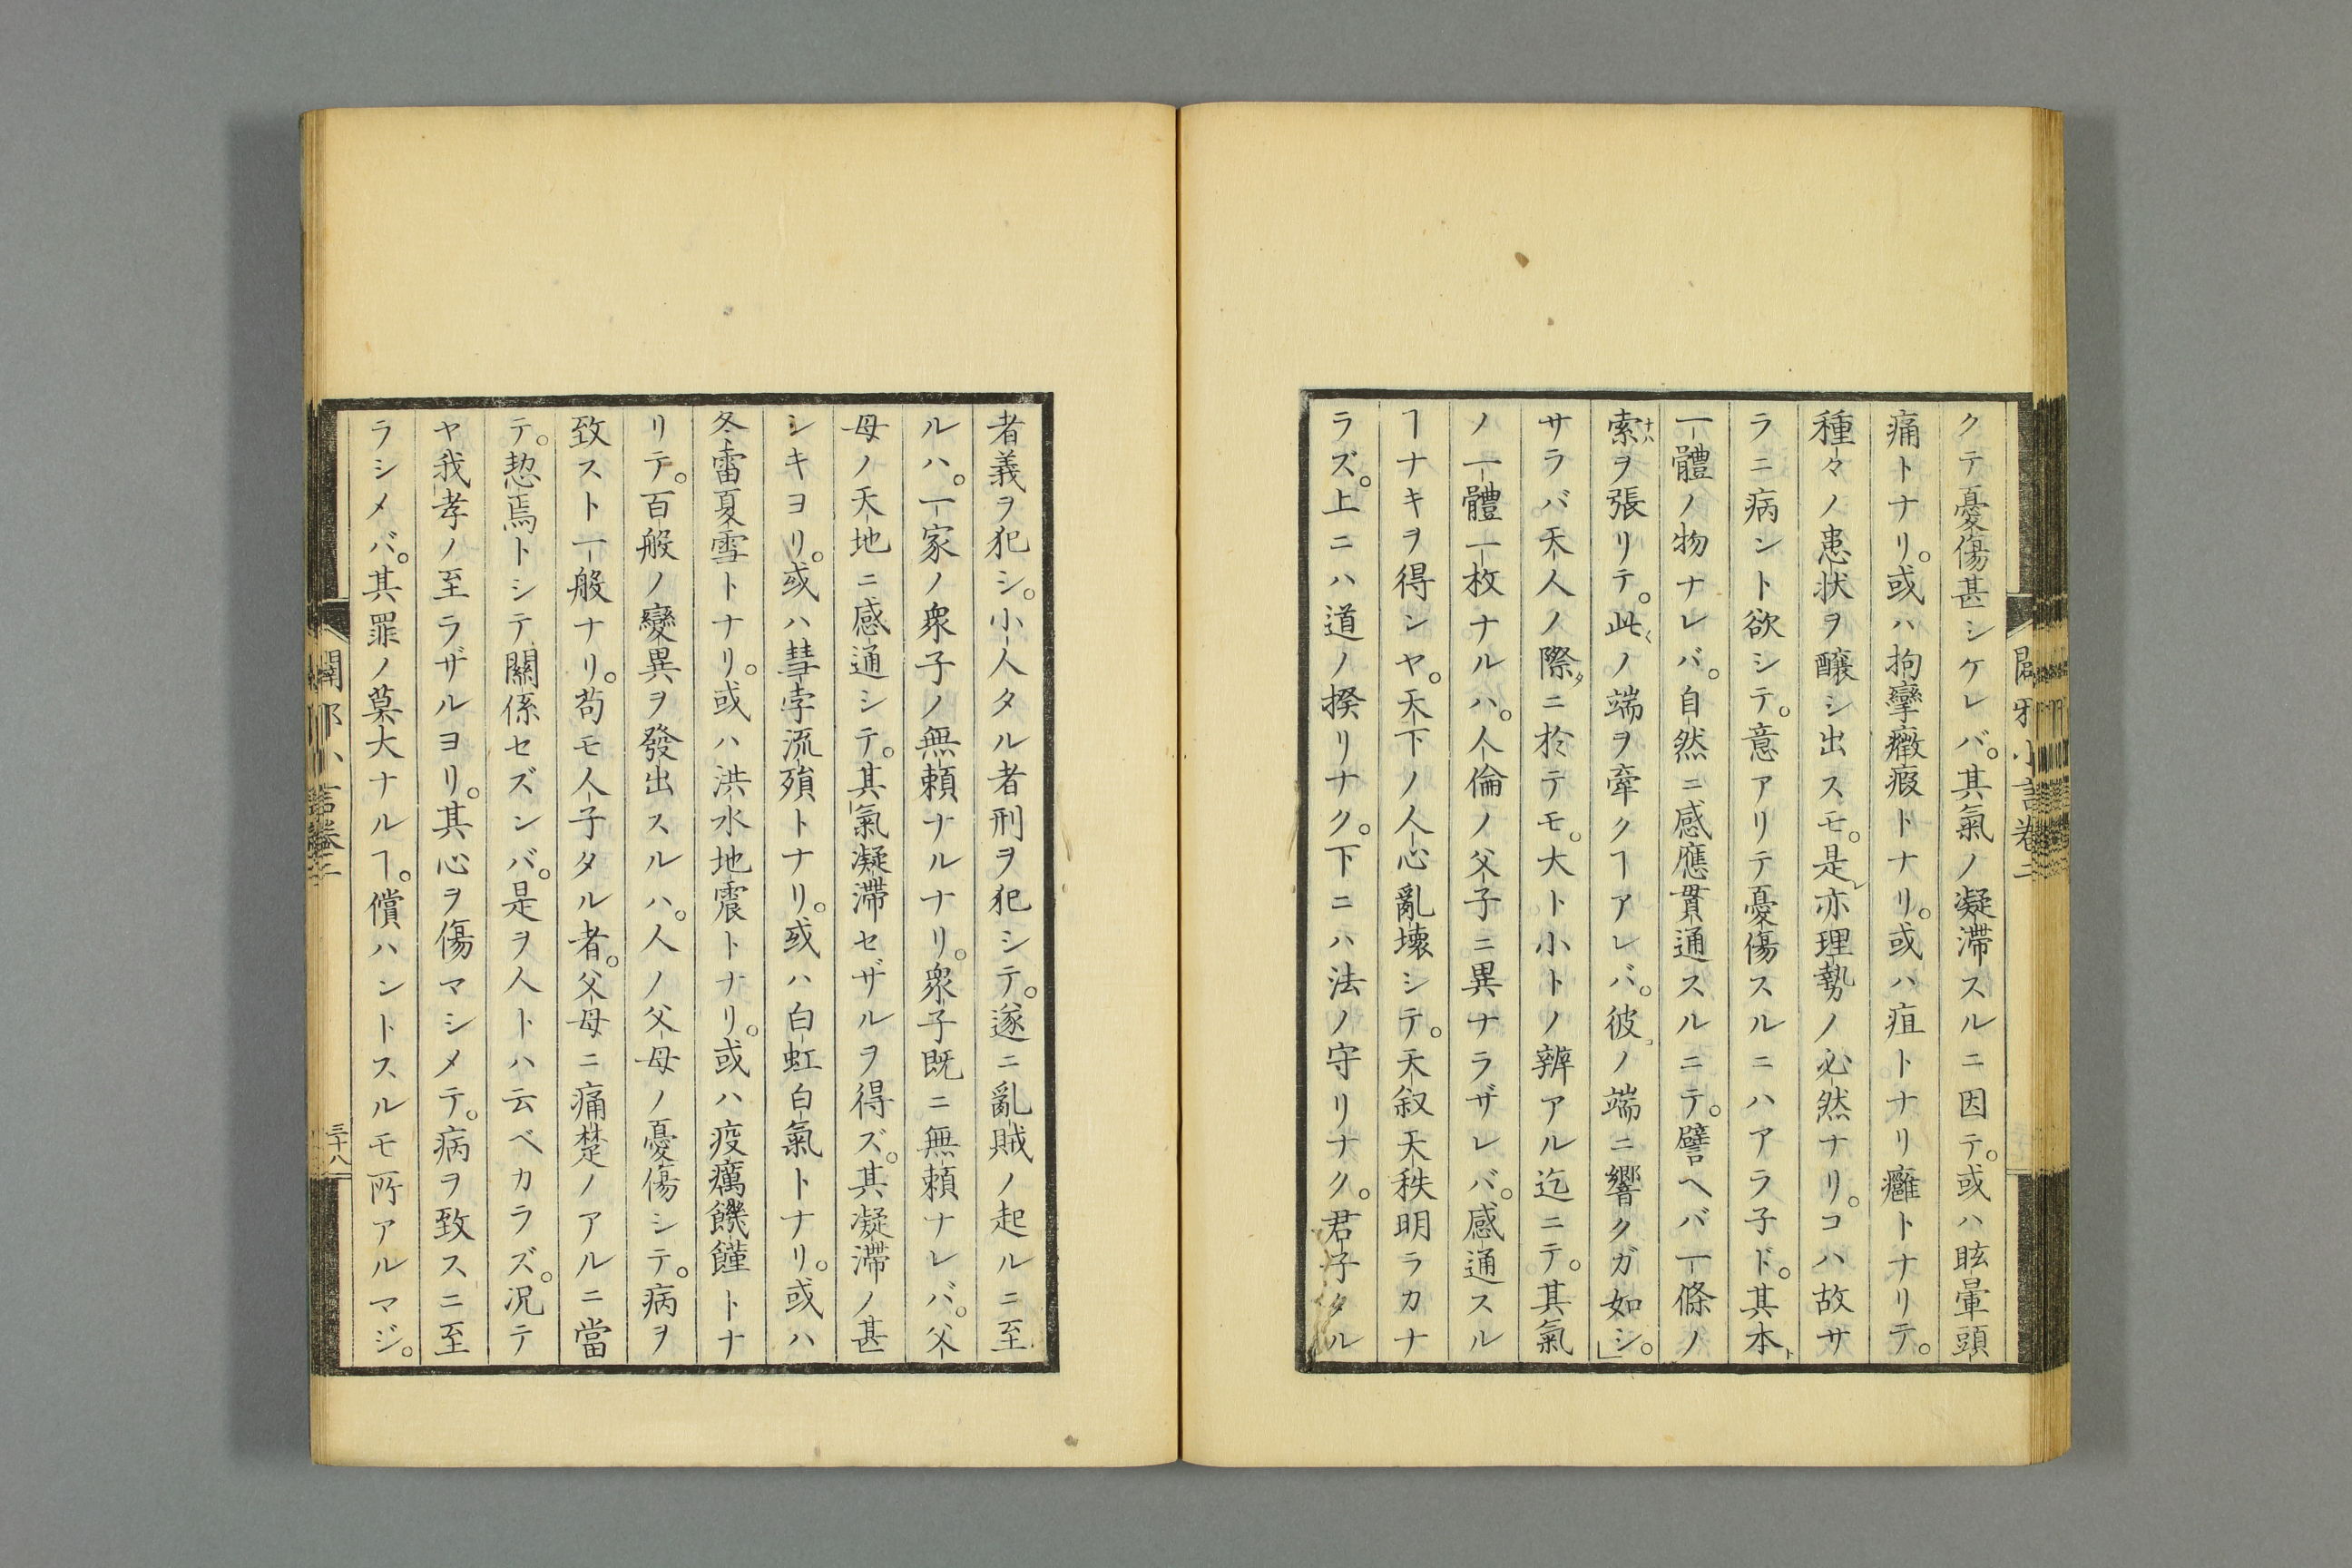 クテ憂傷甚シケレバ。其氣ノ凝滯スルニ因テ。或ハ眩暈頭
痛トナリ。或ハ拘攣癥瘕トナリ。或ハ疽トナリ癰トナリテ。
種々ノ患狀ヲ釀シ出スモ。是レ亦理勢ノ必然ナリ。コハ故サ
ラニ病ント欲シテ。意アリテ憂傷スルニハアラ子ド。其本ト
一體ノ物ナレバ。自然ニ感應貫通スルニテ。譬ヘバ一條ノ
索ナハヲ張リテ。此クノ端ヲ牽クヿアレバ。彼コノ端ニ響クガ如シ。」
サラバ天人ノ際タニ於テモ。大ト小トノ辨アル迄ニテ。其氣
ノ一體一枚ナルハ。人倫ノ父子ニ異ナラザレバ。感通スル
ヿナキヲ得ンヤ。天下ノ人心亂壞シテ。天叙天秩明ラカナ
ラズ。上ニハ道ノ揆リナク。下ニハ法ノ守リナク。君子タル
闢邪小言卷二
者義ヲ犯シ。小人タル者刑ヲ犯シテ。遂ニ亂賊ノ起ルニ至
ルハ。一家ノ衆子ノ無賴ナルナリ。衆子既ニ無賴ナレバ。父
母ノ天地ニ感通シテ。其氣凝滯セザルヲ得ズ。其凝滯ノ甚
シキヨリ。或ハ彗孛流殞トナリ。或ハ白虹白氣トナリ。或ハ
冬雷夏雪トナリ。或ハ洪水地震トナリ。或ハ疫癘饑饉トナ
リテ。百般ノ變異ヲ發出スルハ。人ノ父母ノ憂傷シテ。病ヲ
致スト一般ナリ。苟モ人子タル者。父母ニ痛楚ノアルニ當
テ。恝焉トシテ關係セズンバ。是ヲ人トハ云ベカラズ。況テ
ヤ我孝ノ至ラザルヨリ。其心ヲ傷マシメテ。病ヲ致スニ至
ラシメバ。其罪ノ莫大ナルヿ。償ハントスルモ所アルマジ。
闢邪小言卷二
三十八